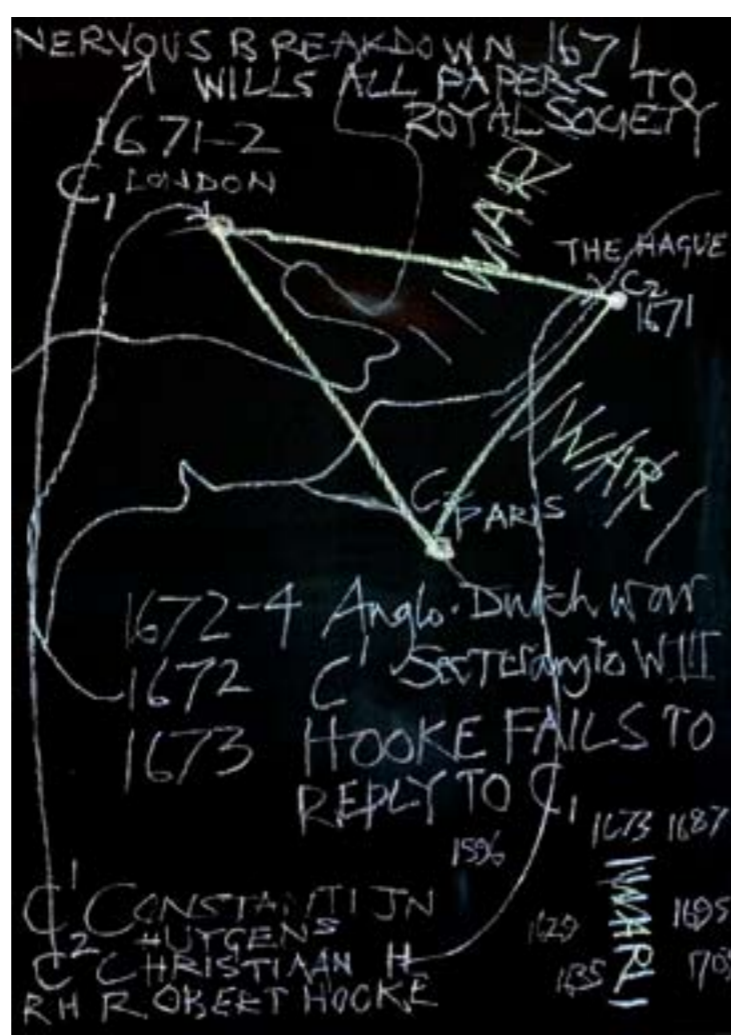 NERVOUS BREAKDOWN 1671
WILLS ALL PAPERS TO
ROYAL SOCIETY
1671-2
C1 LONDON
WAR
THE HAGUE
C2
1671
WAR
C PARIS
1672-4 Anglo-Dutch war
1672 C1 Secretary to W III
1673 HOOKE FAILS TO
REPLY TO C1
1596
1673 1687
WAR
1629
1695
C1 CONSTANTIJN
HUYGENS
C2 CHRISTIAAN H
RH ROBERT HOOKE